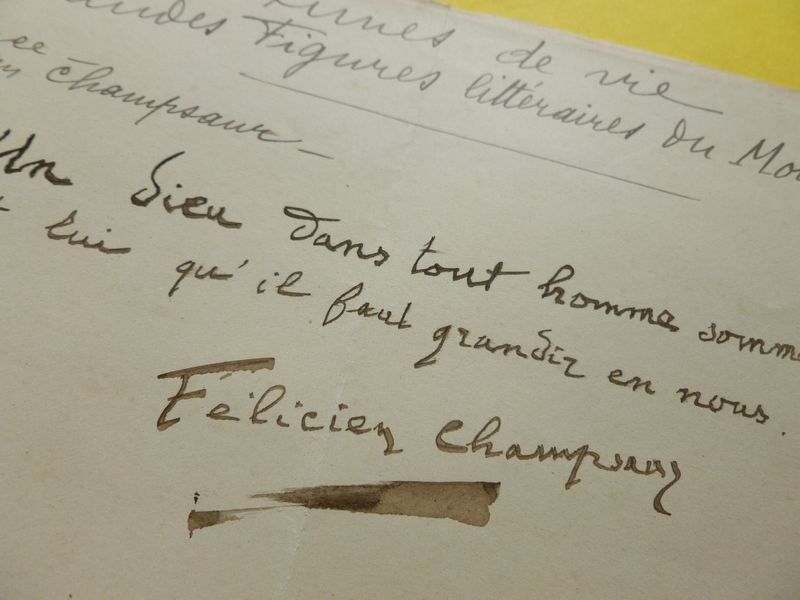 de vie
Figures littéraires du
Champsaur —
Un Dieu dans tout homme
lui qu'il faut grandir en nous.
Félicien Champsaur